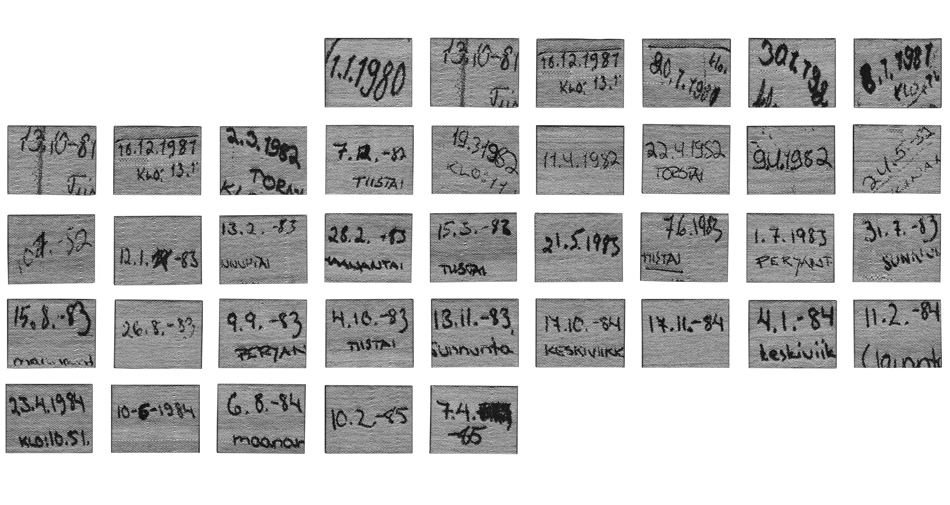 1.1.1980
13.10-81
16.12.1981
KLO: 13.1
20.1.1981
klo.
30.1.198
8.1.1981
KLO
13.10-81
16.12.1981
KLO: 13.1
2.3.1982
TORS
7.12.-82
TIISTAI
19.3.1982
KLO: 11
11.4.1982
22.4.1982
TORSTAI
9.4.1982
24.5-52
-52
12.1. -83
13.2. -83
28.2. -83
MAANANTAI
15.3. -83
TIISTAI
21.5.1983
7.6.1983
TIISTAI
1.7.1983
PERJANT
31.7.-83
SUNNU
15.8.-83
maanant
26.8.-83
9.9.-83
PERJAN
4.10.-83
TIISTAI
13.11.-83
Sunnunta
17.10.-84
KESKIVIIKK
17.11.-84
4.1.-84
keskiviik
11.2.-84
23.4.1984
KLO:10.51.
10-6-1984
6.8.-84
maanan
10.2.-85
7.4.
-85